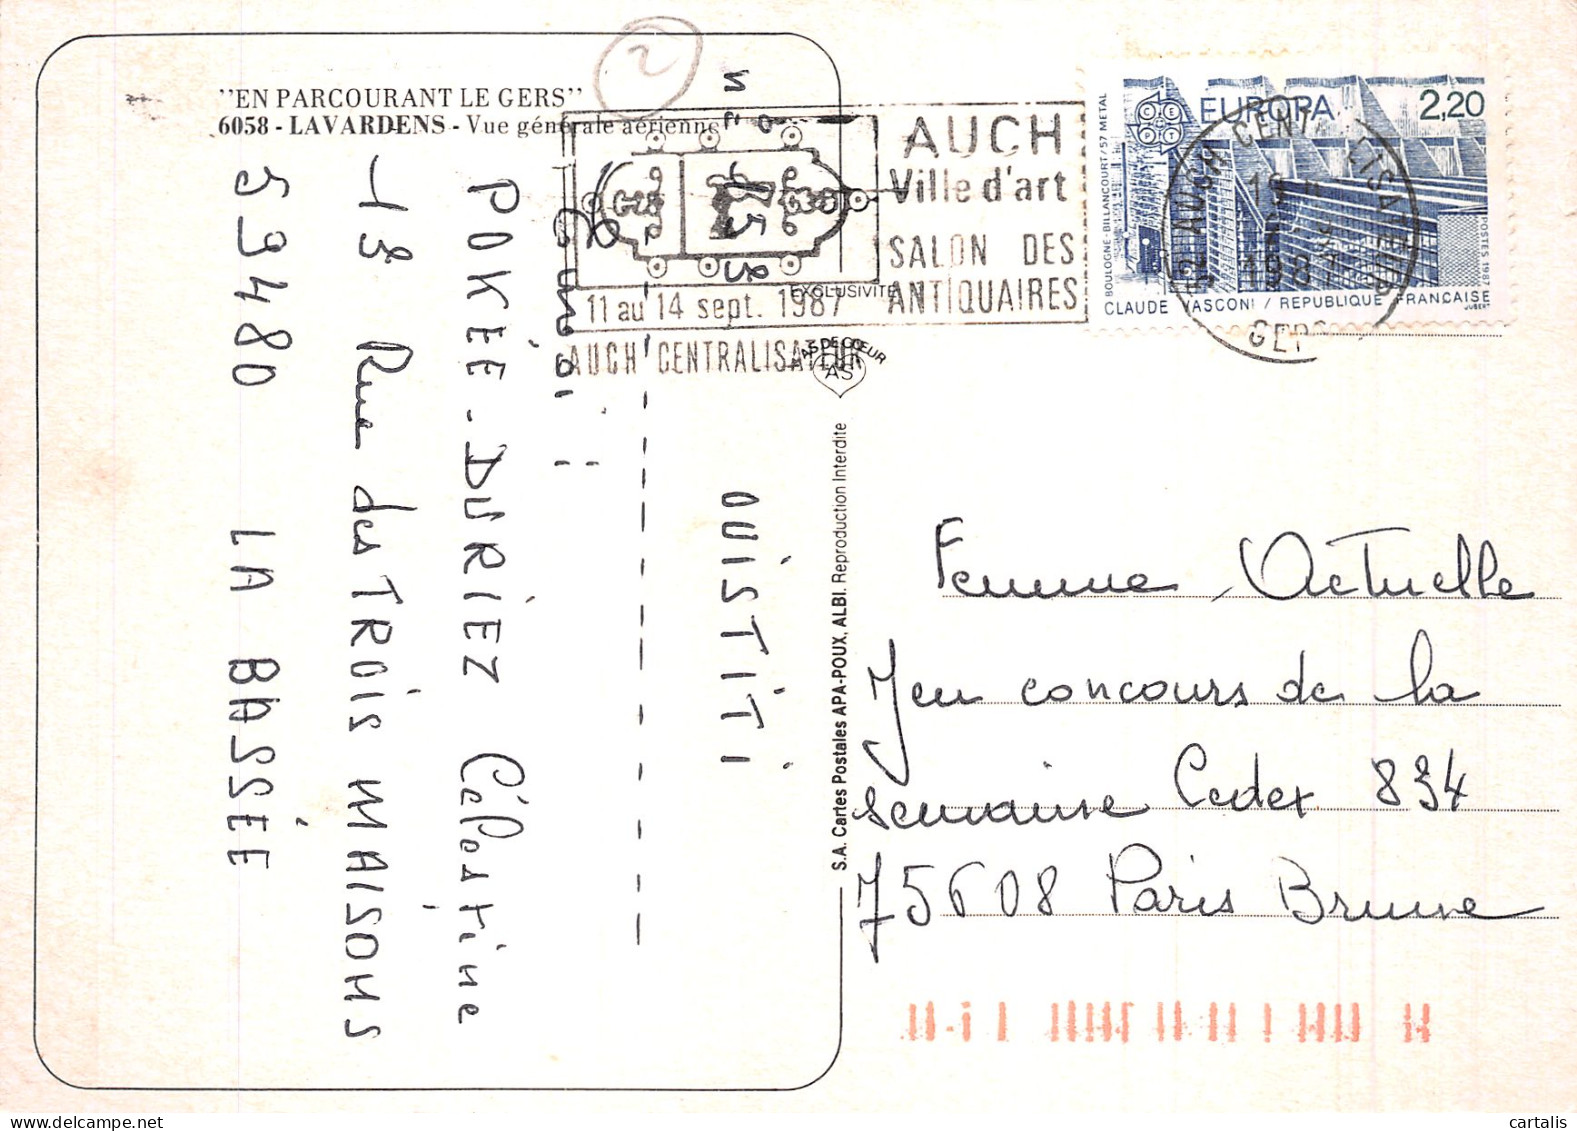 "EN PARCOURANT LE GERS"
6058 - LAVARDENS - Vue générale aérienne
2
AUCH
Ville d'art
SALON DES
ANTIQUAIRES
11 au 14 sept. 1987
AUCH CENTRALISATEUR
EUROPA 2,20
CEPT
BOULOGNE-BILLANCOURT/57 METAL
POSTES 1987
CLAUDE VASCONI / REPUBLIQUE FRANÇAISE
JUBERT
32 AUCH CENTRALISATEUR
GERS
EXCLUSIVITE
AS DE CŒUR
AS
S.A. Cartes Postales APA-POUX, ALBI. Reproduction Interdite
N° 75
OUISTITI
POKÉE-DURIEZ Célestine
18 Rue des TROIS MAISONS
59480 LA BASSÉE
Femme Actuelle
Jeu concours de la
semaine Cedex 834
75608 Paris Brune
cartalis